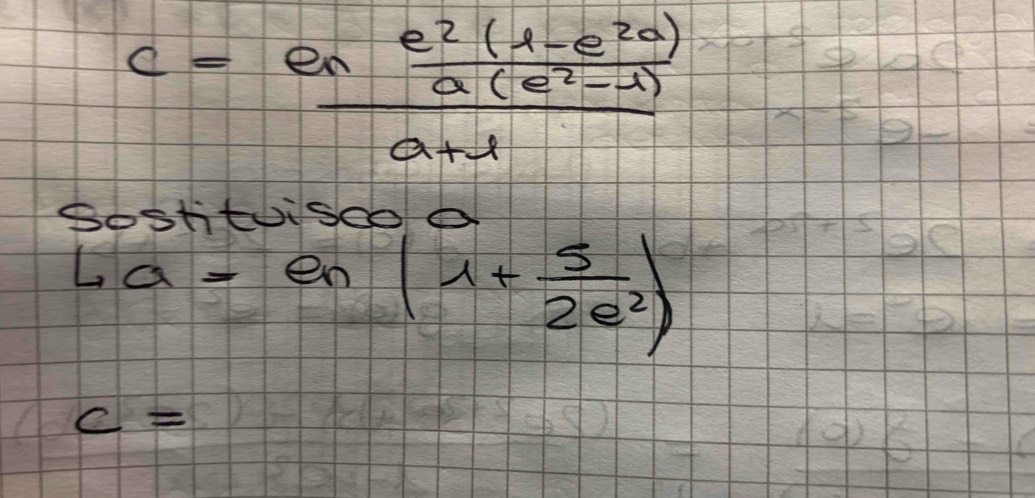 c = en e² (1-e^2a) / a (e²-1) / a+1
Sostituisco a
↳ a = en (1 + 5 / 2e²)
c =